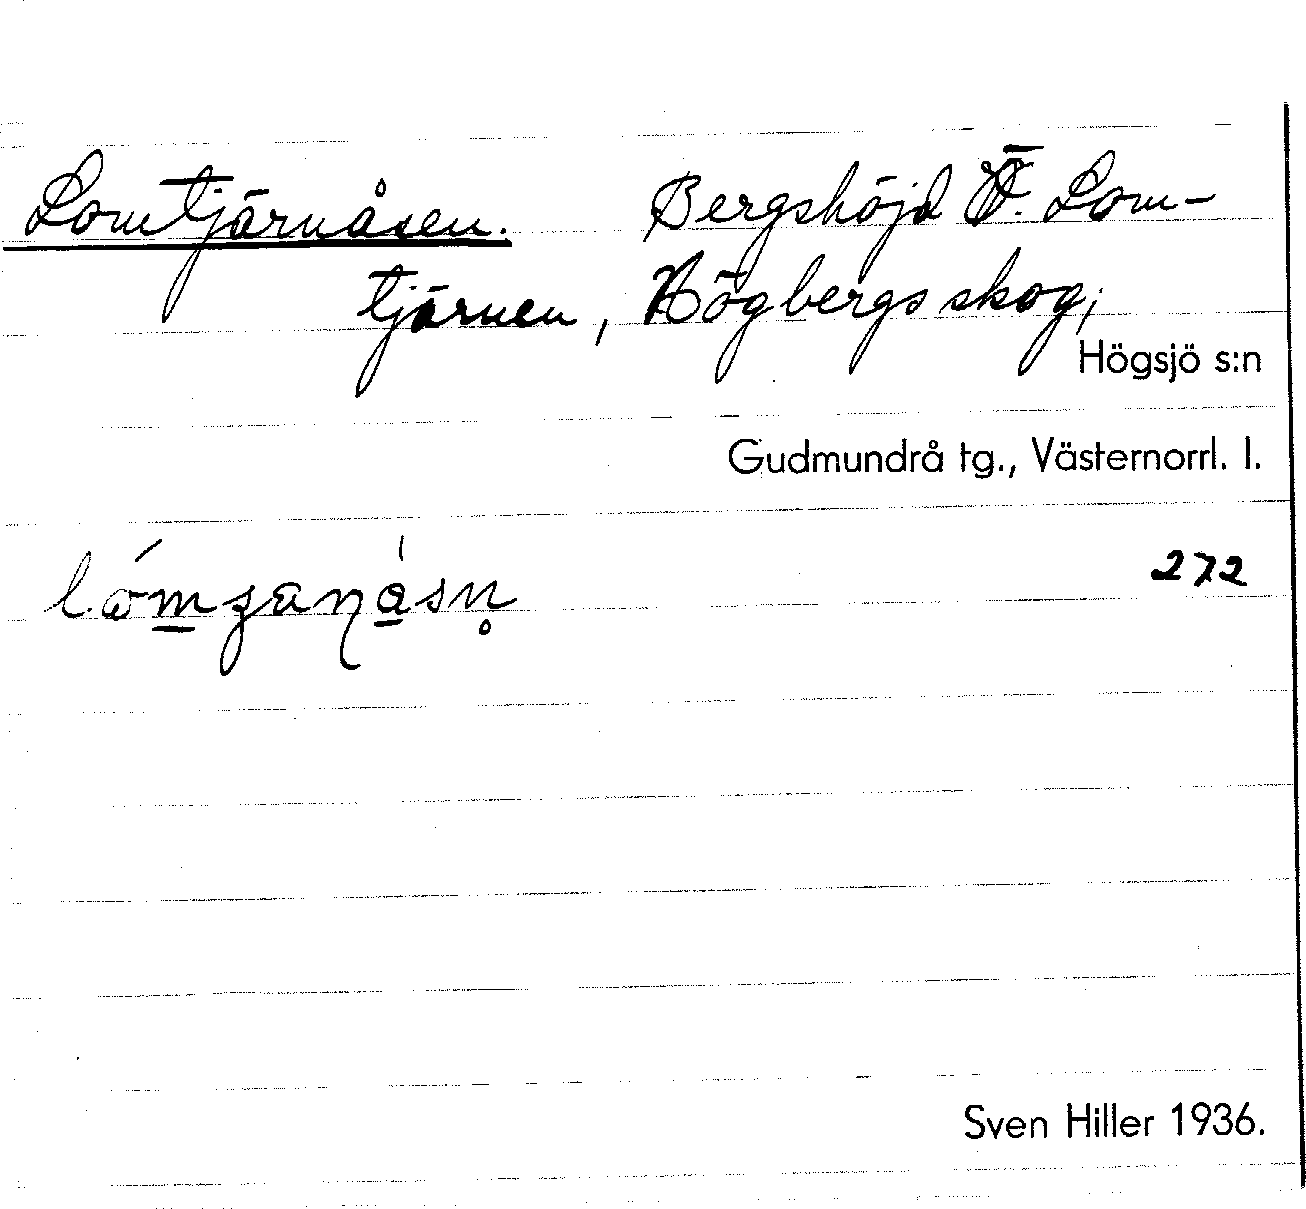 Lomtjärnåsen. Bergshöjd V. Lom-
tjärnen, Högbergsskog;
Högsjö s:n
Gudmundrå tg., Västernorrl. l.
272
Sven Hiller 1936.